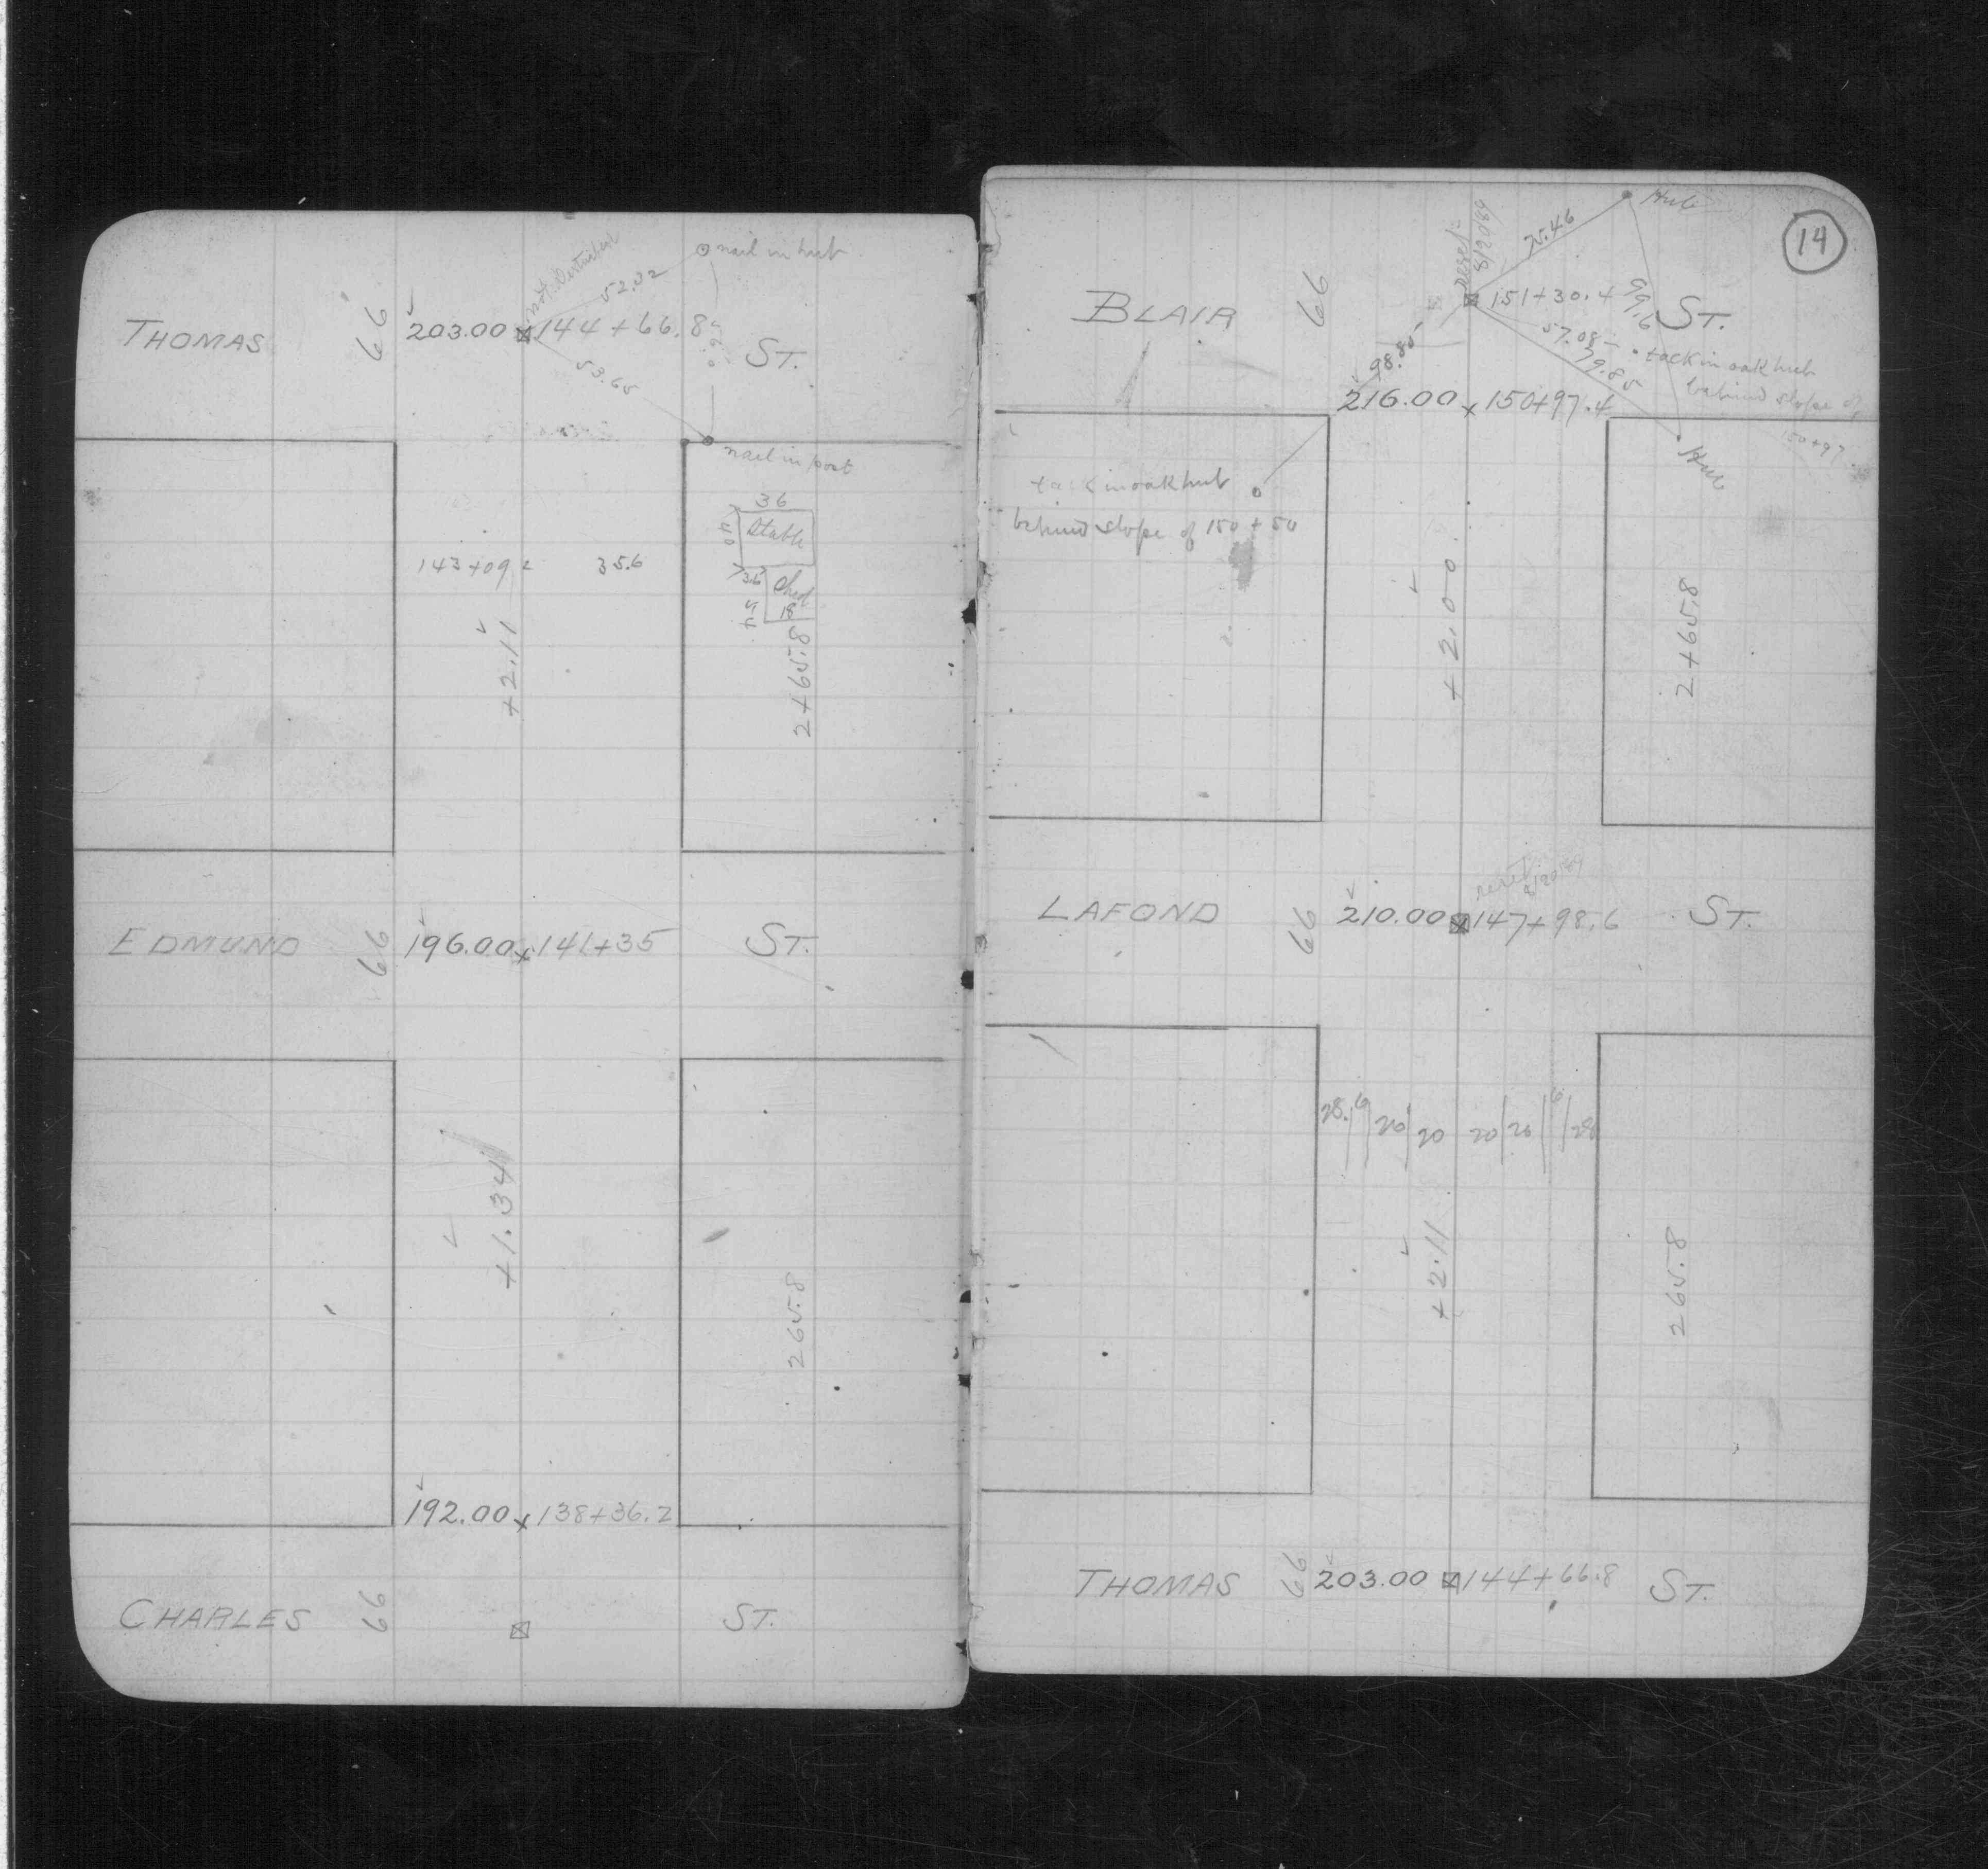 nail in hub
52.32
THOMAS 66 203.00 144+66.8 ST.
53.65
nail in post
36
40 Stable
143+09.2 35.6
36 Shed
18
+2.11
2+65.8
EDMUND 66 196.00 141+35 ST.
+1.34
265.8
192.00 138+36.2
CHARLES 66 ST.
14
Hub
75.46
reset
8/20/89
BLAIR 66 151+30.4 ST.
99.6
57.08
79.85
tack in oak hub
behind slope of
150+97
98.85
216.00 150+97.4
Hub
tack in oak hub
behind slope of 150+50
+2.00
2+65.8
reset
8/20/89
LAFOND 66 210.00 147+98.6 ST.
28. 6 20 20 20 20 6 28
+2.11
265.8
THOMAS 66 203.00 144+66.8 ST.